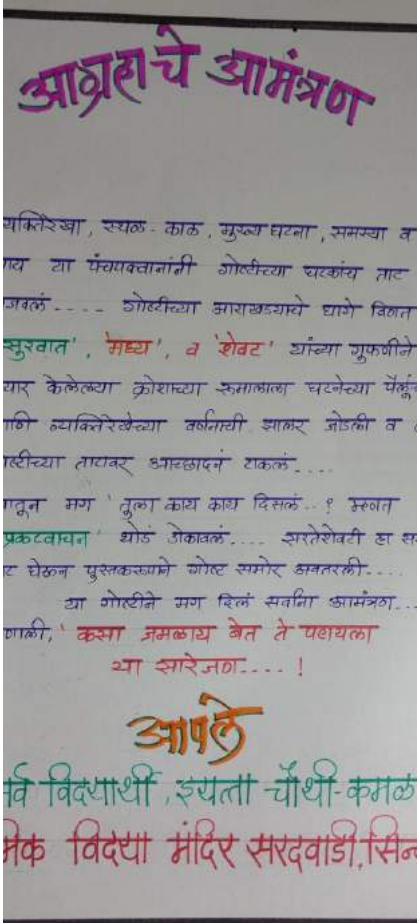 आग्रहाचे आमंत्रण
व्यक्तिरेखा, स्थळ-काळ, मुख्य घटना, समस्या व
या पंचपक्वानांनी गोष्टीच्या घटकांच ताट
गोष्टीच्या आराखड्याचे धागे विणत
सुरवात', 'मध्य', व 'शेवट' यांच्या गुफणीने
केलेल्या क्रोशाच्या रुमालाला घटनेच्या
व्यक्तिरेखेच्या वर्णनाची झालर जोडली व
ताटावर आच्छादन टाकलं....
मग 'तुला काय काय दिसलं..? म्हणत
प्रकटवाचन' थोडं डोकावलं.... सरतेशेवटी हा
घेऊन पुस्तकरूपाने गोष्ट समोर अवतरली....
या गोष्टीने मग दिलं सर्वांना आमंत्रण...
'कसा जमलाय बेत ते पहायला
या सारेजण....!
आपले
विद्यार्थी, इयत्ता चौथी-कमळ
विद्या मंदिर सरदवाडी, सिन्न